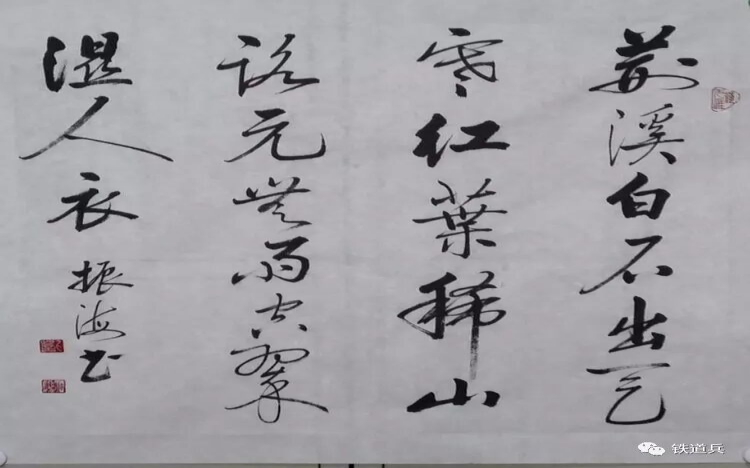 荆溪白石出天
寒红葉稀山
路元無雨空翠
湿人衣
振海书
铁道兵